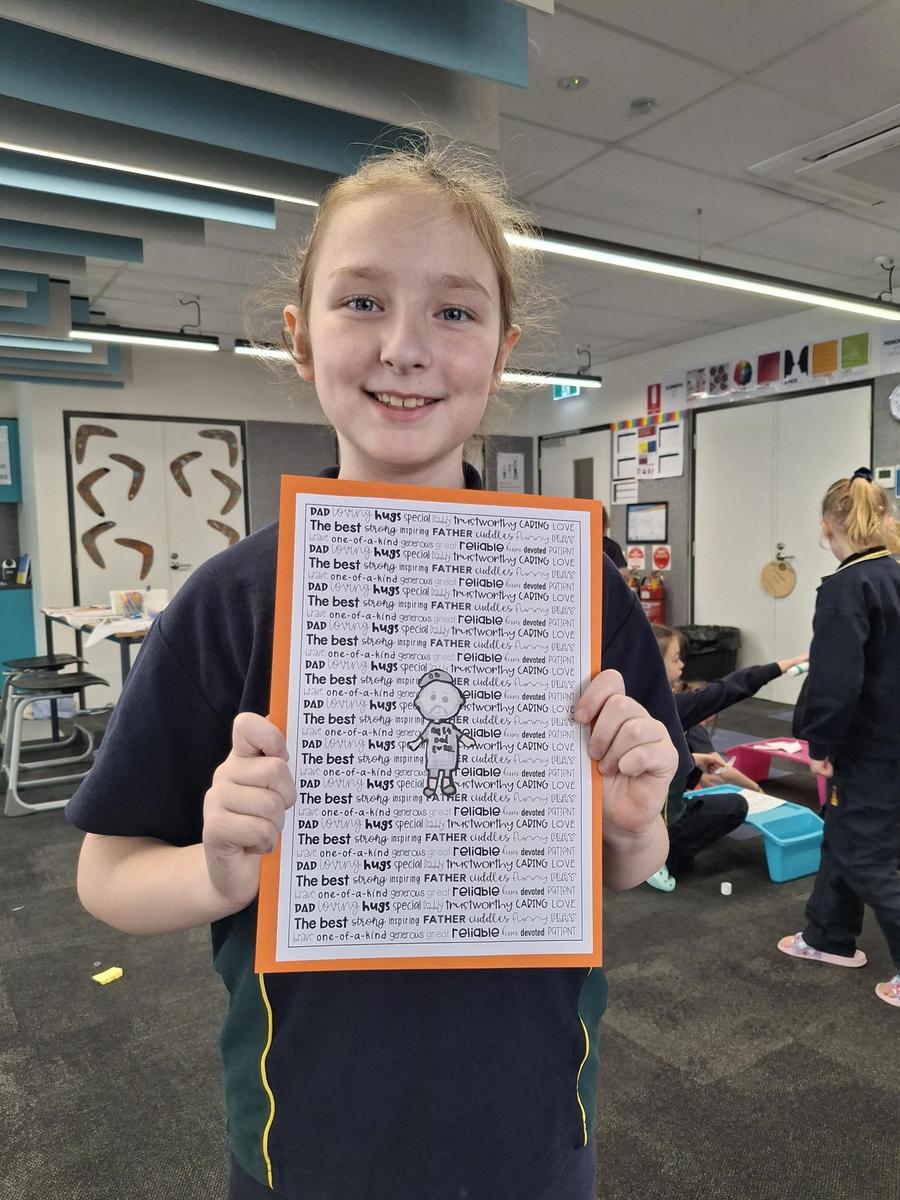 DAD loving hugs special Daddy trustworthy CARING LOVE
The best strong inspiring FATHER cuddles funny PLAY
brave one-of-a-kind generous great reliable kisses devoted PATIENT
DAD loving hugs special Daddy trustworthy CARING LOVE
The best strong inspiring FATHER cuddles funny PLAY
brave one-of-a-kind generous great reliable kisses devoted PATIENT
DAD loving hugs special Daddy trustworthy CARING LOVE
The best strong inspiring FATHER cuddles funny PLAY
brave one-of-a-kind generous great reliable kisses devoted PATIENT
DAD loving hugs special Daddy trustworthy CARING LOVE
The best strong inspiring FATHER cuddles funny PLAY
brave one-of-a-kind generous great reliable kisses devoted PATIENT
DAD loving hugs special Daddy trustworthy CARING LOVE
The best strong inspiring HER cuddles funny PLAY
brave one-of-a-kind reliable kisses devoted PATIENT
DAD loving hugs special CARING LOVE
The best strong inspiring HER cuddles funny PLAY
brave one-of-a-kind generous reliable kisses devoted PATIENT
DAD loving hugs CARING LOVE
The best strong inspiring HER cuddles funny PLAY
brave one-of-a-kind generous reliable kisses devoted PATIENT
DAD loving hugs special trustworthy CARING LOVE
The best strong inspiring FATHER cuddles funny PLAY
brave one-of-a-kind generous great reliable kisses devoted PATIENT
DAD loving hugs special Daddy trustworthy CARING LOVE
The best strong inspiring FATHER cuddles funny PLAY
brave one-of-a-kind generous great reliable kisses devoted PATIENT
DAD loving hugs special Daddy trustworthy CARING LOVE
The best strong inspiring FATHER cuddles funny PLAY
brave one-of-a-kind generous great reliable kisses devoted PATIENT
DAD loving hugs special Daddy trustworthy CARING LOVE
The best strong inspiring FATHER cuddles funny PLAY
brave one-of-a-kind generous great reliable kisses devoted PATIENT